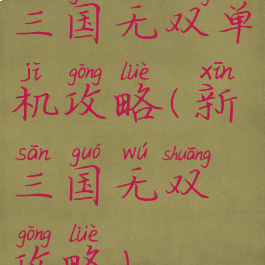 三国无双单
jī gōng lüè xīn
机攻略(新
sān guó wú shuāng
三国无双
gōng lüè
攻略)